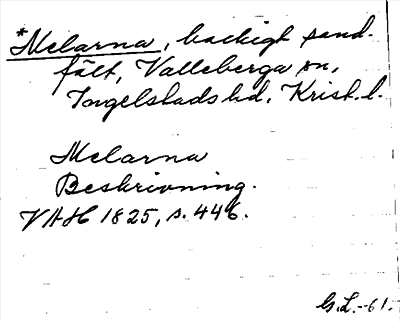 *Melarna, backigt sand-
fält, Valleberga sn,
Ingelstads hd, Krist. l.
Melarna
Beskrivning.
VAH 1825, s. 446.
G.L. -61.